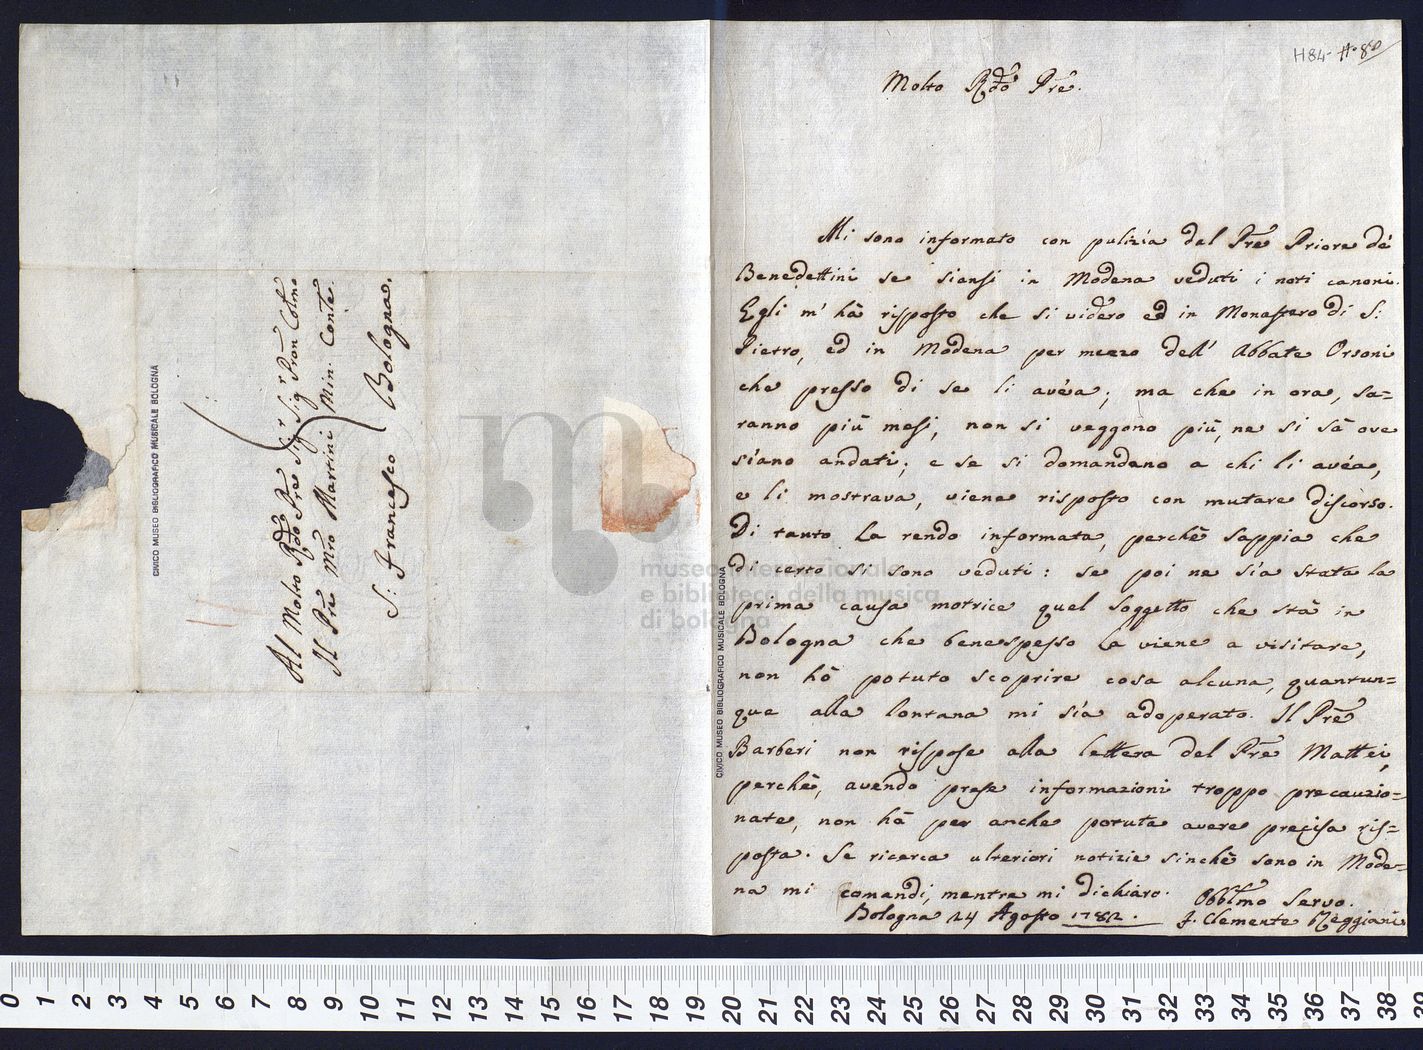 H84
Molto Rdo Pre.
Mi sono informato con pulizia dal Pre Priore de'
Benedettini se siansi in Modena veduti i noti canoni.
Egli m' hà risposto che si videro ed in Monastero di S:
Pietro, ed in Modena per mezzo dell' Abbate Orsoni
che presso di se li avéa; ma che in ora, sa=
ranno più mesi, non si veggono più, ne si sà ove
siano andati; e se si domandano a chi li avéa,
e li mostrava, viene risposto con mutare discorso.
Di tanto La rendo informata, perchè sappia che
di certo si sono veduti: se poi ne sía stata la
prima causa motrice quel soggetto che stà in
Bologna che benespesso La viene a visitare,
non hò potuto scoprire cosa alcuna, quantun=
que alla lontana mi sía adoperato. Il Pre
Barberi non rispose alla lettera del Pre Mattei,
perchè, avendo prese informazioni troppo precauzio=
nate, non hà per anche potuta avere precisa ris=
posta. Se ricerca ulteriori notizie sinchè sono in Mode=
na mi comandi, mentre mi dichiaro.
Obblmo Servo.
Bologna 24 Agosto 1782.
F. Clemente Reggiani
Al Molto Rdo Pre Sigr Sigr Pron Colmo
Il Pre Mro Martini Min: Conte.
S: Francesco Bologna.
CIVICO MUSEO BIBLIOGRAFICO MUSICALE BOLOGNA
CIVICO MUSEO BIBLIOGRAFICO MUSICALE BOLOGNA
museo internazionale
e biblioteca della musica
di bologna
0 1 2 3 4 5 6 7 8 9 10 11 12 13 14 15 16 17 18 19 20 21 22 23 24 25 26 27 28 29 30 31 32 33 34 35 36 37 38